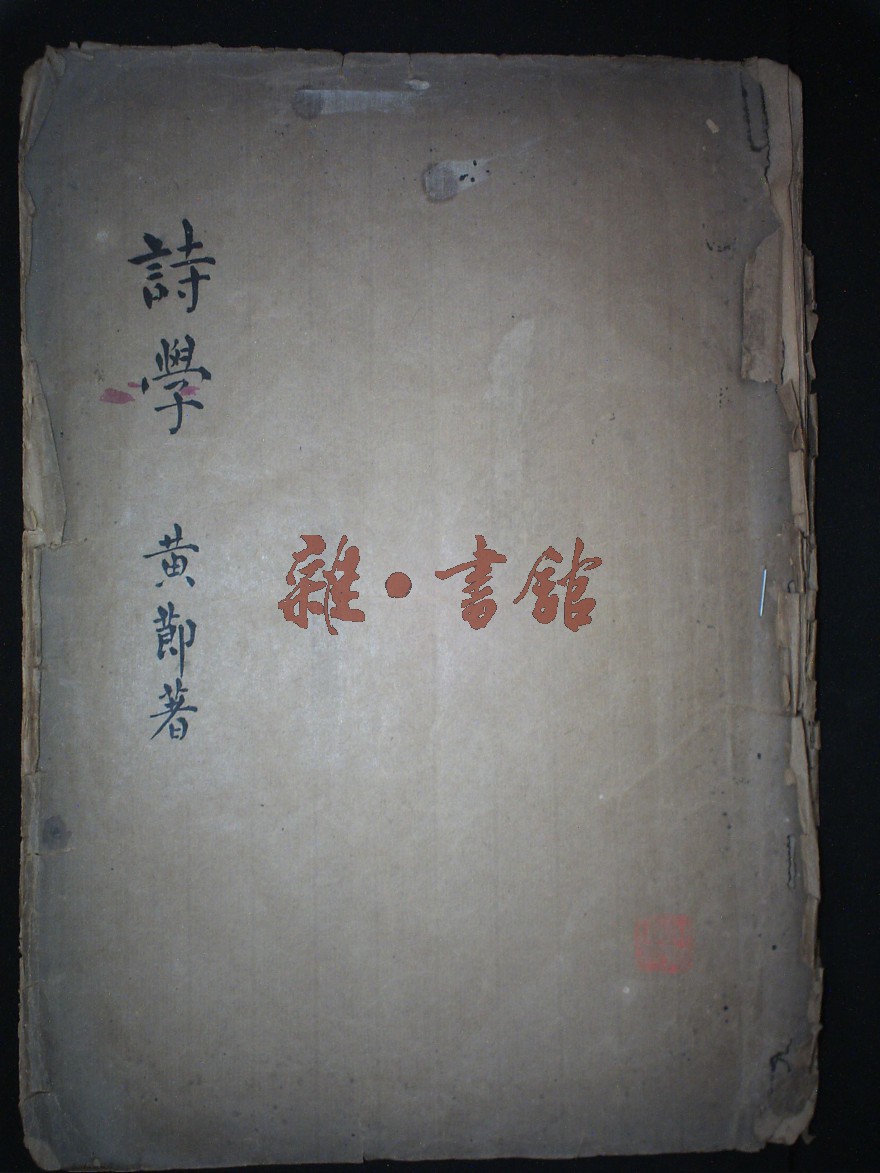 詩學 黃節著
雜·書館